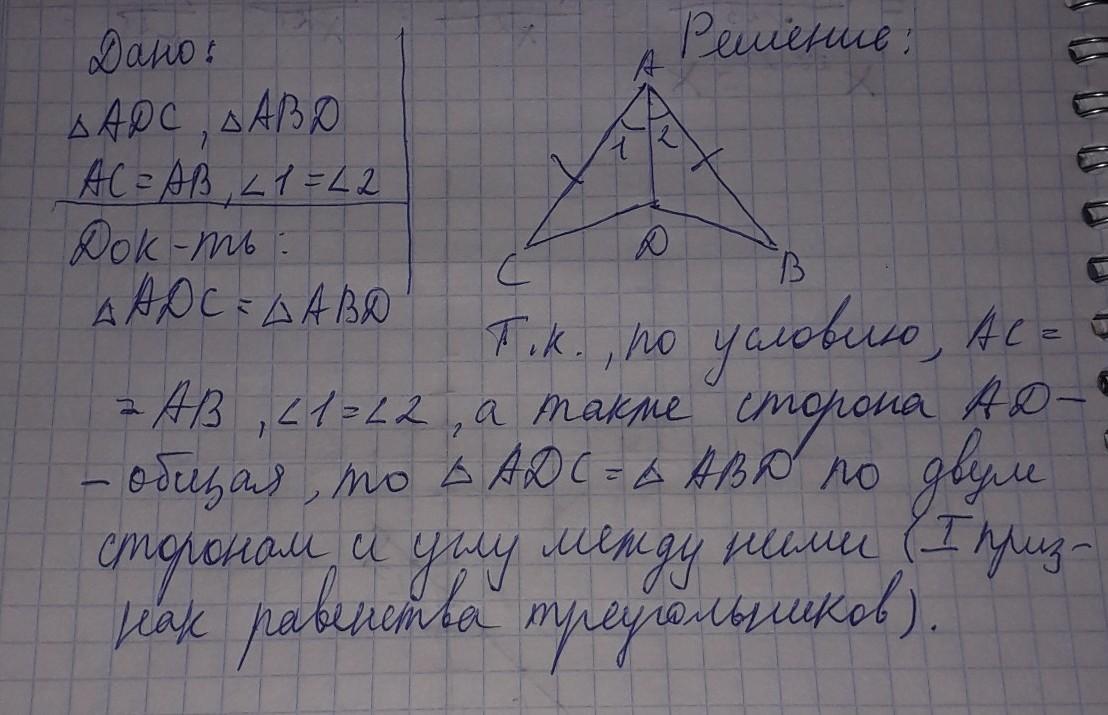 Дано:
△ADC, △ABD
AC = AB, ∠1 = ∠2
Док-ть:
△ADC = △ABD
Решение:
A
1 2
C D B
Т.к., по условию, AC =
= AB, ∠1 = ∠2, а также сторона AD –
– общая, то △ADC = △ABD по двум
сторонам и углу между ними (I приз-
нак равенства треугольников).